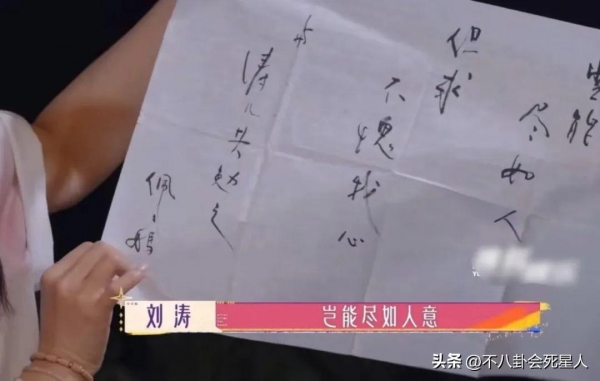 豈能
尽如人
但求
不愧我心
与
涛儿共勉之
佩々媽
刘涛
岂能尽如人意
头条 @不八卦会死星人